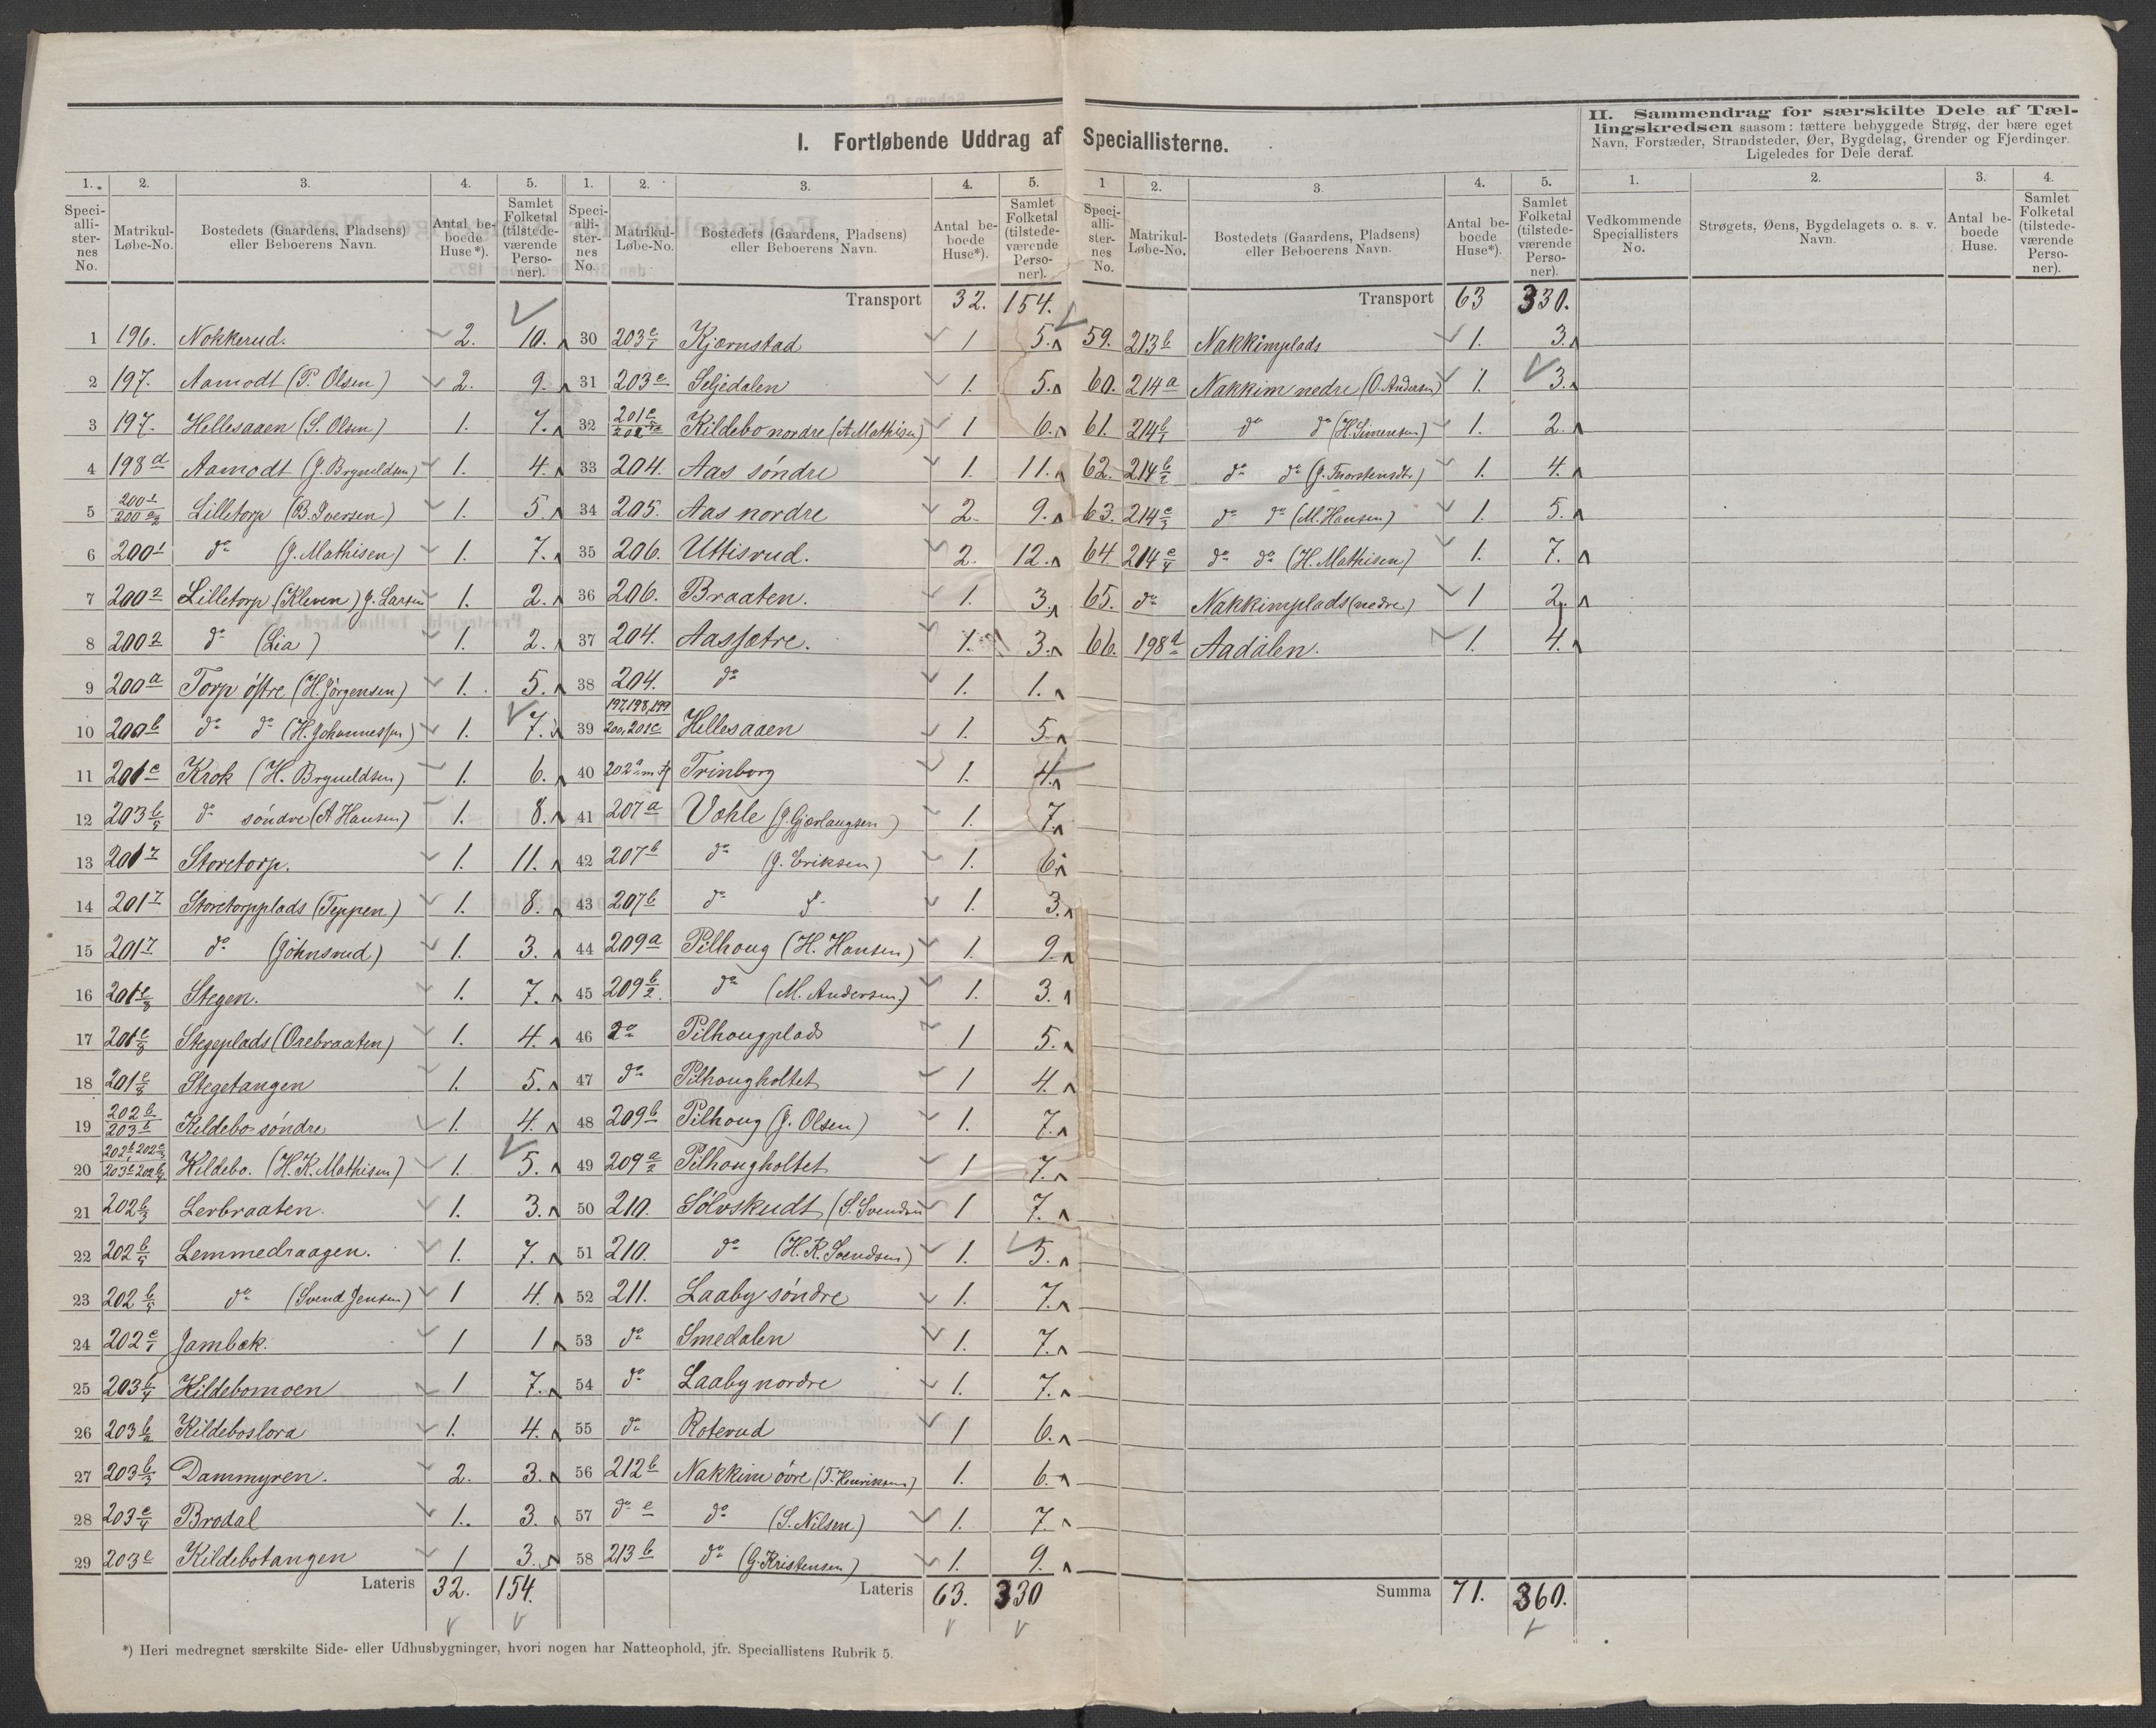 I. Fortløbende Uddrag af Speciallisterne.
1. 2. 3. 4. 5.
Speciallisternes No. Matrikul-Løbe-No. Bostedets (Gaardens, Pladsens) eller Beboerens Navn. Antal beboede Huse*). Samlet Folketal (tilstedeværende Personer).
1 196. Nokkerud. 2. 10.
2 197. Aamodt (P. Olsen) 2. 9.
3 197. Hellesaaen (S. Olsen) 1. 7.
4 198d Aamodt (J. Brynildsen) 1. 4.
5 Lilletorp (B. Iversen) 1. 5.
6 200 1 do (J. Mathisen) 1. 7.
7 200 2 Lilletorp (Kleven) J. Larsen 1. 2.
8 200 2 do (Lia) 1. 2.
9 200a Torp østre (H. Jörgensen) 1. 5.
10 200b do do (H. Johannessen) 1. 7.
11 201e Krok (H. Brynildsen) 1. 6.
12 203 b/5 do söndre (A Hansen) 1. 8.
13 201 7 Storetorp. 1. 11.
14 201 7 Storetorpplads (Teppen) 1. 8.
15 201 7 do (Johnsrud) 1. 3.
16 201 e/8 Stegen. 1. 7.
17 201 e/8 Stegeplads (Orebraaten) 1. 4.
18 201 e/8 Stegetangen 1. 5.
19 202 b 203 b Kildebo söndre 1. 4.
20 Kildebo. (H.K. Mathisen) 1. 5.
21 202 b/3 Lerbraaten. 1. 3.
22 202 b/5 Lemmedraagen. 1. 7.
23 202 b/5 do (Svend Jensen) 1 4.
24 202 e/1 Jambæk. 1 1
25 203 b/4 Kildebomoen 1 7.
26 203 b/2 Kildeboslora 1. 4.
27 203 b/3 Dammyren. 2. 3.
28 203 e/4 Brodal 1. 3.
29 203e Kildebotangen 1 3.
Lateris 32. 154.
1. 2. 3. 4. 5.
Speciallisternes No. Matrikul-Løbe-No. Bostedets (Gaardens, Pladsens) eller Beboerens Navn. Antal beboede Huse*). Samlet Folketal (tilstedeværende Personer).
Transport 32. 154.
30 203 e/1 Kjærnstad 1 5.
31 203e Seljedalen 1. 5.
32 Kildebo nordre (A Mathisen) 1 6.
33 204. Aas söndre 1. 11.
34 205. Aas nordre 2. 9.
35 206. Uttisrud. 2. 12.
36 206. Braaten. 1. 3.
37 204. Aassætre. 1. 3.
38 204. do 1. 1.
39 197,198,199 200,201e Hellesaaen 1. 5
40 Trinborg 1. 4.
41 207a Vahle (J. Gjærlaugsen) 1. 7.
42 207b do (J. Eriksen) 1. 6.
43 207b do 1. 3.
44 209a Pilhoug (H. Hansen) 1. 9.
45 209 b/2. do (M. Andersen) 1. 3.
46 do Pilhougplads 1 5.
47 do Pilhougholtet 1 4.
48 209b Pilhoug (J. Olsen) 1. 7.
49 209 a/2 Pilhougholtet 1 7.
50 210. Sölvskudt (S. Svendsen 1 7.
51 210. do (H.K. Svendsen) 1. 5.
52 211. Laaby söndre 1. 7.
53 do Smedalen 1. 7.
54 do Laaby nordre 1. 7.
55 do Roterud 1 6.
56 212b Nakkim övre (T. Henriksen) 1. 6.
57 do e do (S. Nilsen) 1. 7.
58 213b do (G. Kristensen) 1. 9.
Lateris 63. 330
1 2. 3. 4. 5.
Speciallisternes No. Matrikul-Løbe-No. Bostedets (Gaardens, Pladsens) eller Beboerens Navn. Antal beboede Huse*). Samlet Folketal (tilstedeværende Personer).
Transport 63 330.
59. 213b Nakkimplads 1. 3.
60. 214a Nakkim nedre (O. Andersen) 1. 3.
61. 214 b/1 do do (H. Simensen) 1. 2.
62. 214 b/2 do do 1. 4.
63. 214 e/3 do do (M. Hansen) 1. 5.
64. 214 e/4 do do (H. Mathisen) 1. 7.
65. do Nakkimplads (nedre) 1 2.
66. 198d Aadalen. 1. 4.
Summa 71. 360.
II. Sammendrag for særskilte Dele af Tællingskredsen saasom: tættere bebyggede Strøg, der bære eget
Navn, Forstæder, Strandsteder, Øer, Bygdelag, Grender og Fjerdinger.
Ligeledes for Dele deraf.
1. 2. 3. 4.
Vedkommende Speciallisters No. Strøgets, Øens, Bygdelagets o. s. v. Navn. Antal beboede Huse. Samlet Folketal (tilstedeværende Personer).
*) Heri medregnet særskilte Side- eller Udhusbygninger, hvori nogen har Natteophold, jfr. Speciallistens Rubrik 5.